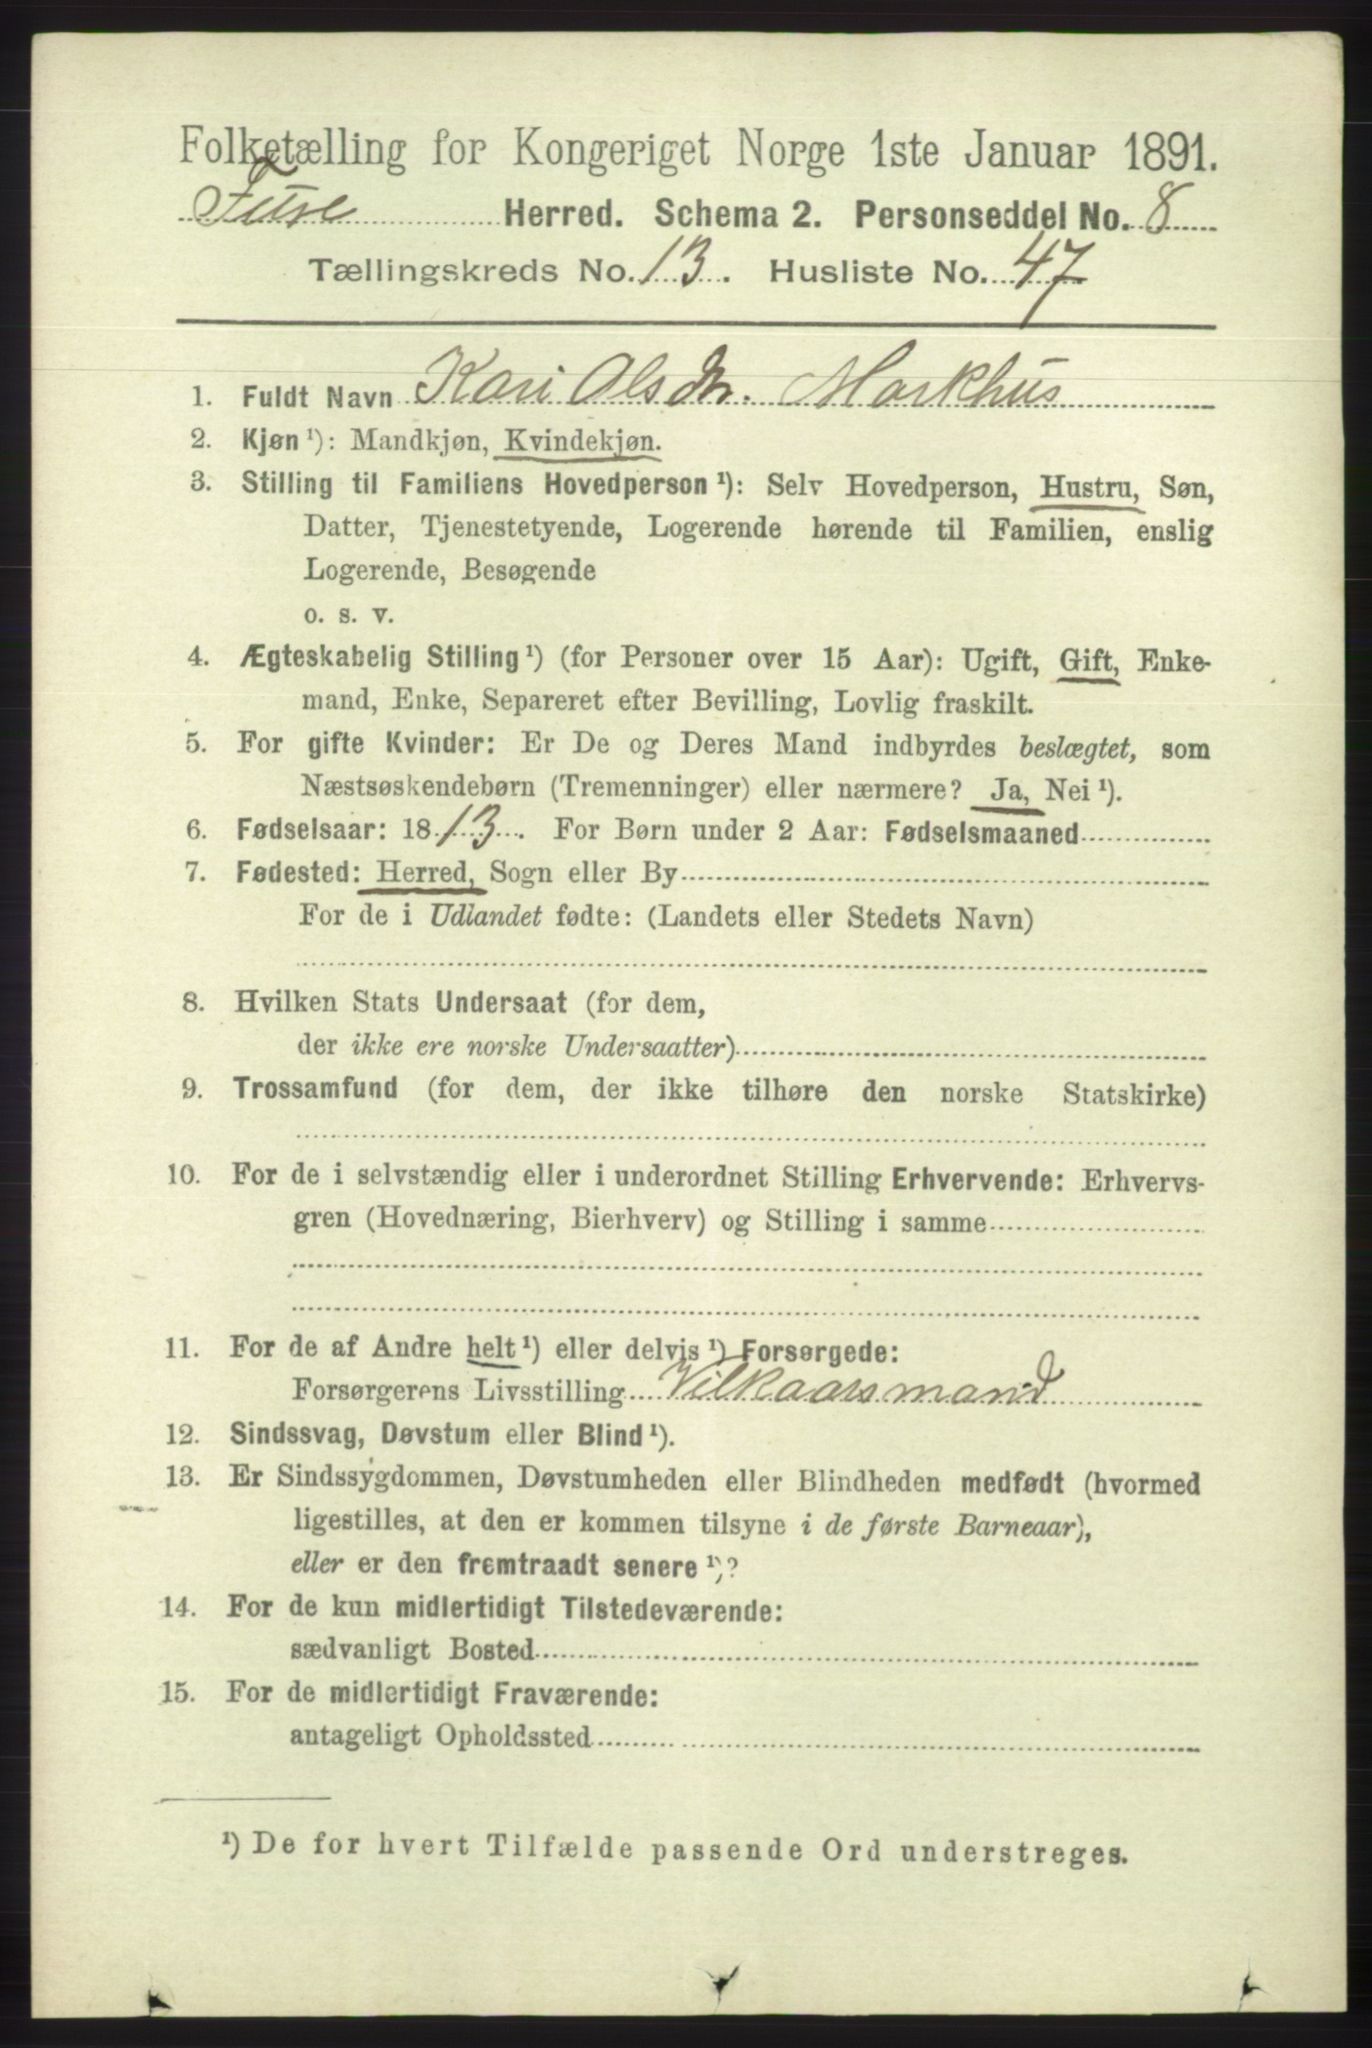 Folketælling for Kongeriget Norge 1ste Januar 1891.
Fuse Herred. Schema 2. Personseddel No. 8
Tællingskreds No. 13. Husliste No. 47
1. Fuldt Navn Kari Olsdtr. Markhus
2. Kjøn ¹): Mandkjøn, Kvindekjøn.
3. Stilling til Familiens Hovedperson ¹): Selv Hovedperson, Hustru, Søn,
Datter, Tjenestetyende, Logerende hørende til Familien, enslig
Logerende, Besøgende
o. s. v.
4. Ægteskabelig Stilling ¹) (for Personer over 15 Aar): Ugift, Gift, Enke-
mand, Enke, Separeret efter Bevilling, Lovlig fraskilt.
5. For gifte Kvinder: Er De og Deres Mand indbyrdes beslægtet, som
Næstsøskendebørn (Tremenninger) eller nærmere? Ja, Nei ¹).
6. Fødselsaar: 1813. For Børn under 2 Aar: Fødselsmaaned
7. Fødested: Herred, Sogn eller By
For de i Udlandet fødte: (Landets eller Stedets Navn)
8. Hvilken Stats Undersaat (for dem,
der ikke ere norske Undersaatter)
9. Trossamfund (for dem, der ikke tilhøre den norske Statskirke)
10. For de i selvstændig eller i underordnet Stilling Erhvervende: Erhvervs-
gren (Hovednæring, Bierhverv) og Stilling i samme
11. For de af Andre helt ¹) eller delvis ¹) Forsørgede:
Forsørgerens Livsstilling Vilkaarsmand
12. Sindssvag, Døvstum eller Blind ¹).
13. Er Sindssygdommen, Døvstumheden eller Blindheden medfødt (hvormed
ligestilles, at den er kommen tilsyne i de første Barneaar),
eller er den fremtraadt senere ¹)?
14. For de kun midlertidigt Tilstedeværende:
sædvanligt Bosted
15. For de midlertidigt Fraværende:
antageligt Opholdssted
¹) De for hvert Tilfælde passende Ord understreges.